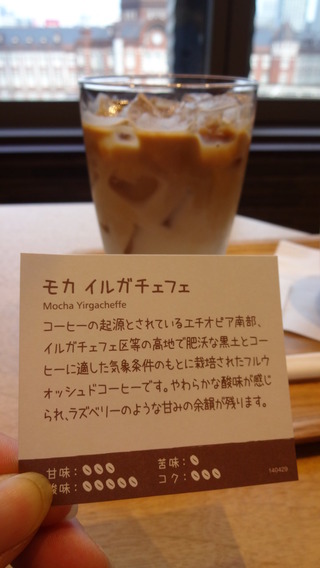 モカ イルガチェフェ
Mocha Yirgacheffe
コーヒーの起源とされているエチオピア南部、
イルガチェフェ区等の高地で肥沃な黒土とコー
ヒーに適した気象条件のもとに栽培されたフルウ
ォッシュドコーヒーです。やわらかな酸味が感じ
られ、ラズベリーのような甘みの余韻が残ります。
甘味： 苦味：
酸味： コク：
140429